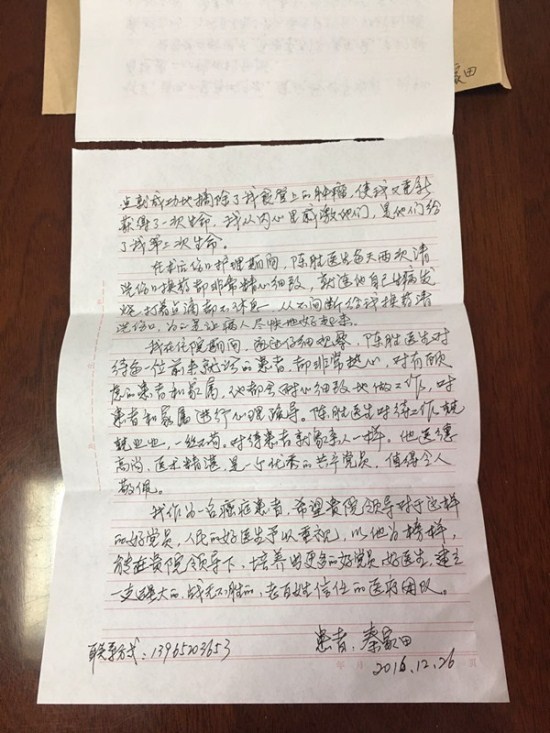 田
点就成功地摘除了我食管上的肿瘤，使我又重新
获得了一次生命，我从内心里感激他们，是他们给
了我第二次生命。
在书后伤口护理期间，陈胜医生每天两次清
洗伤口换药都非常精心细致，就连他自己生病发
烧，打着点滴都不休息，从不间断给我换药清
洗伤口，为的是让病人尽快地好起来。
我在住院期间，通过仔细观察，陈胜医生对
待每一位前来就诊的患者，都非常热心，对有顾
虑的患者和家属，他都会耐心细致地做工作，对
患者和家属进行心理疏导。陈胜医生对待工作兢
兢业业，一丝不苟，对待患者就象亲人一样。他医德
高尚，医术精湛，是一个优秀的共产党员，值得令人
敬佩。
我作为一名癌症患者，希望贵院领导对于这样
的好党员，人民的好医生予以重视，以他为榜样，
能在贵院领导下，培养出更多的好党员好医生，建立
一支强大的，战无不胜的，老百姓信任的医疗团队。
患者：秦家田
联系方式：13965203653
2016.12.26